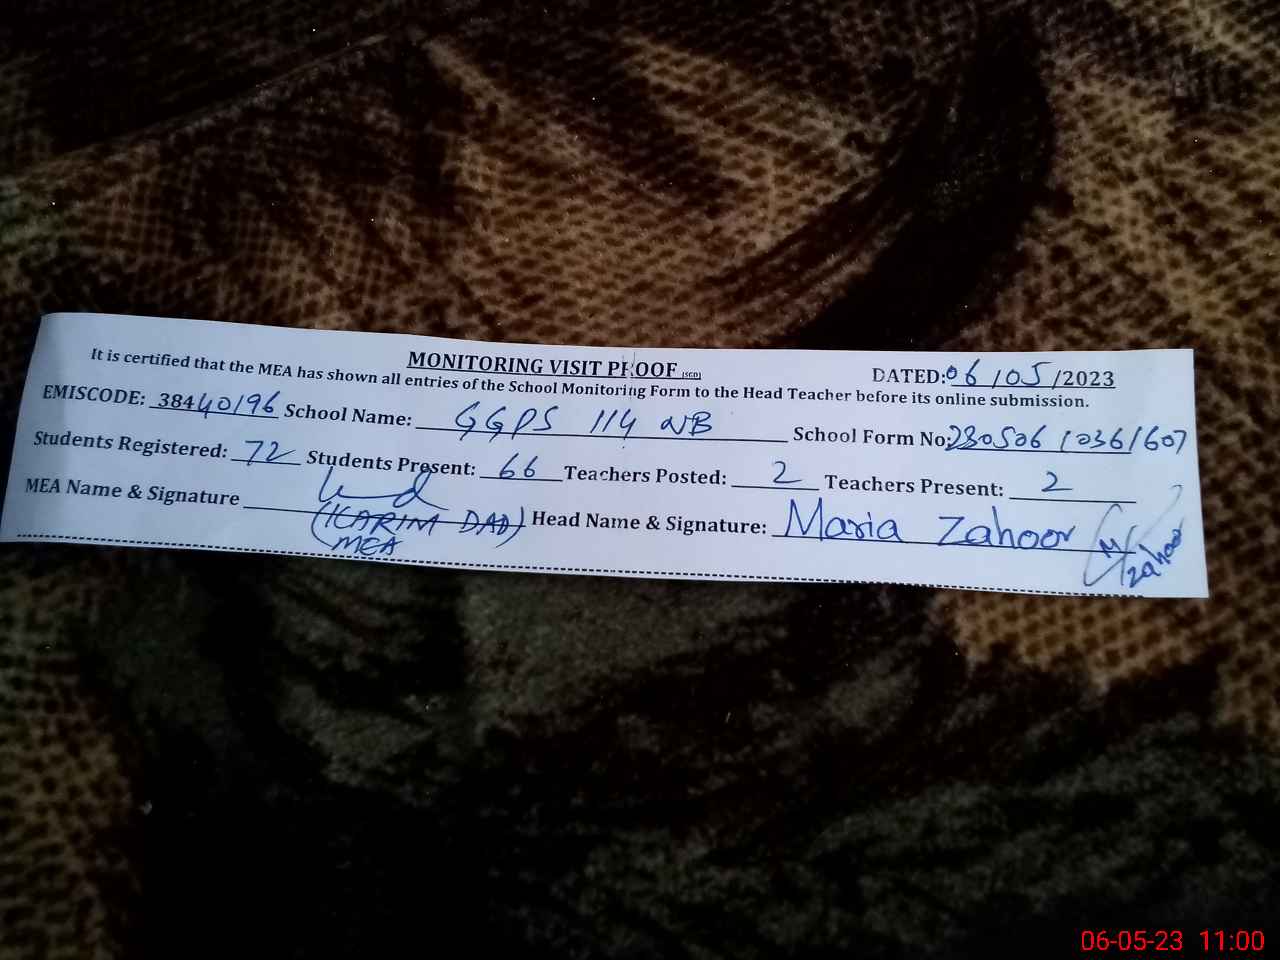 MONITORING VISIT PROOF (SGD) DATED: 06/05/2023
It is certified that the MEA has shown all entries of the School Monitoring Form to the Head Teacher before its online submission.
EMISCODE: 38440196 School Name: GGPS 114 NB School Form No: 230506 10361607
Students Registered: 72 Students Present: 66 Teachers Posted: 2 Teachers Present: 2
MEA Name & Signature (KARIM DAD) Head Name & Signature: Maria Zahoor
MEA
M zahoor
06-05-23 11:00